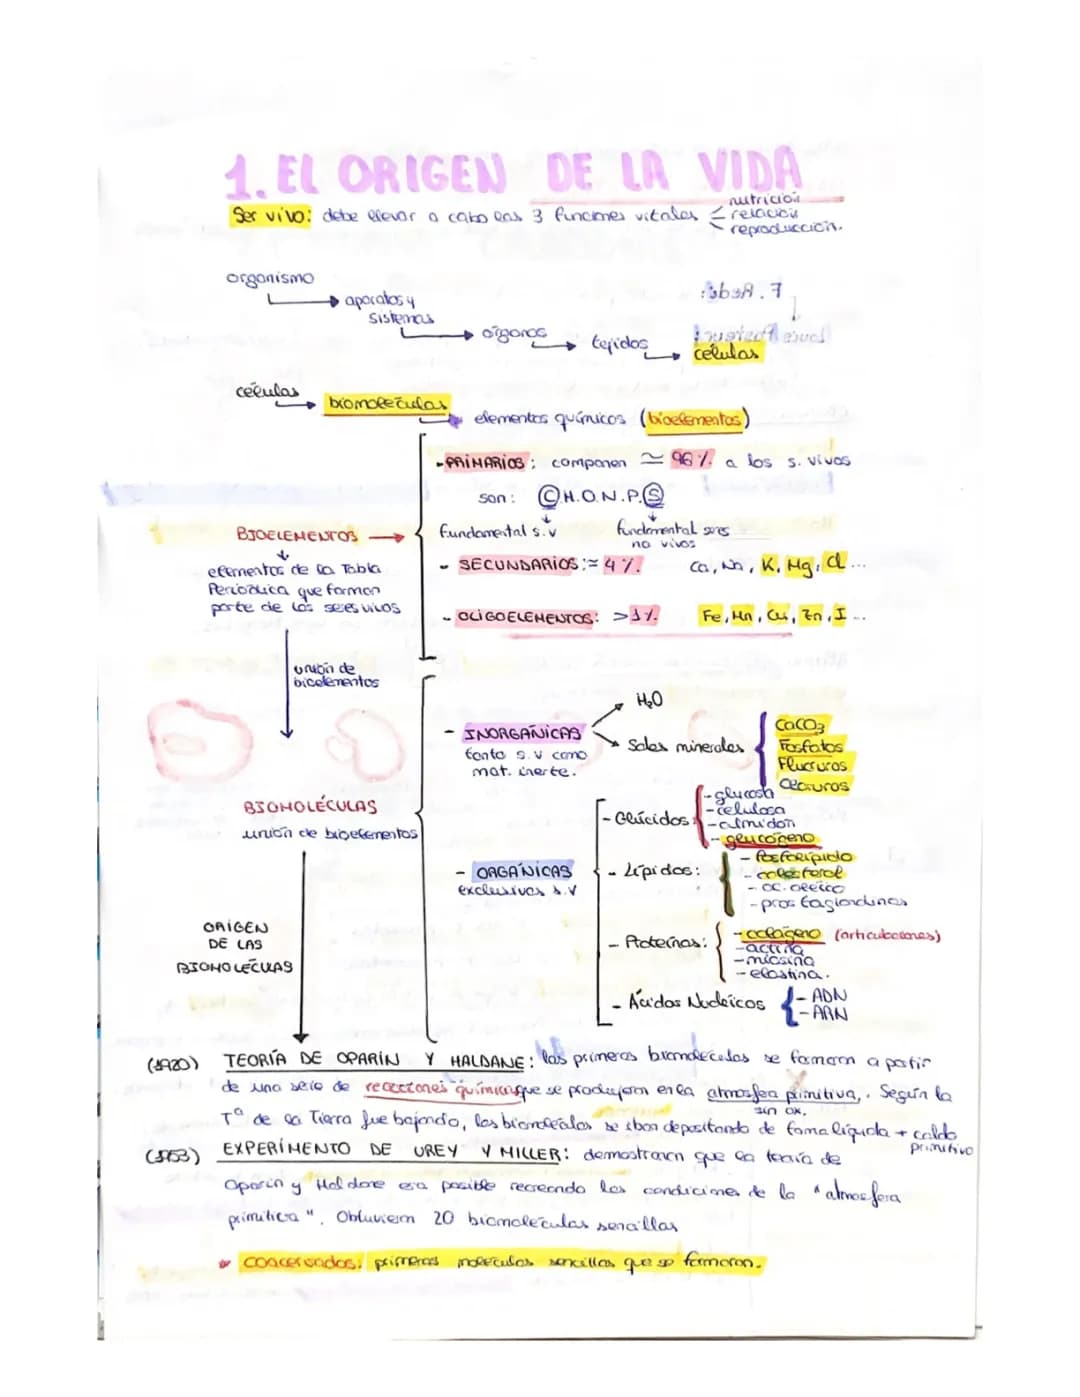 1. EL ORIGEN DE LA VIDA
Ser vivo: debe llevar a cabo las 3 funciones vitales
nutrición
relación
reproducción.
organismo
aparatos y
sistemas
órganos
tejidos
células
F. Redi:
Louis Pasteur:
células
biomoléculas
elementos químicos (bioelementos)
-PRIMARIOS: componen ≃ 96% a los s. vivos
son: C.H.O.N.P.S
fundamental s.v
fundamental seres
no vivos
BIOELEMENTOS
elementos de la Tabla
Periódica que forman
parte de los seres vivos
- SECUNDARIOS: ≃ 4%. Ca, Na, K, Mg, Cl ...
- OLIGOELEMENTOS: >1%. Fe, Mn, Cu, Zn, I ..
unión de
bioelementos
- INORGÁNICAS
tanto s.v como
mat. inerte.
H₂O
Sales minerales
CaCO₃
Fosfatos
Fluoruros
Cloruros
BIOMOLÉCULAS
unión de bioelementos
- ORGÁNICAS
exclusivas s.v
- Glúcidos:
- glucosa
- celulosa
- almidón
- glucógeno
- Lípidos:
- fosfolípido
- colesterol
- ac. oleico
- prostaglandinas
- Proteínas:
- colágeno (articulaciones)
- actina
- miosina
- elastina.
- Ácidos Nucleicos
- ADN
- ARN
ORIGEN
DE LAS
BIOMOLÉCULAS
(1920) TEORÍA DE OPARÍN Y HALDANE: las primeras biomoléculas se formaron a partir
de una serie de reacciones químicas que se produjeron en la atmosfera primitiva,. Según la
sin ox.
Tª de la Tierra fue bajando, las biomoléculas se iban depositando de forma líquida → caldo
primitivo
(1953) EXPERIMENTO DE UREY Y MILLER: demostraron que la teoría de
Oparin y Haldane era posible recreando las condiciones de la "atmosfera
primitiva". Obtuvieron 20 biomoléculas sencillas
coacervados: primeras moléculas sencillas que se formaron.